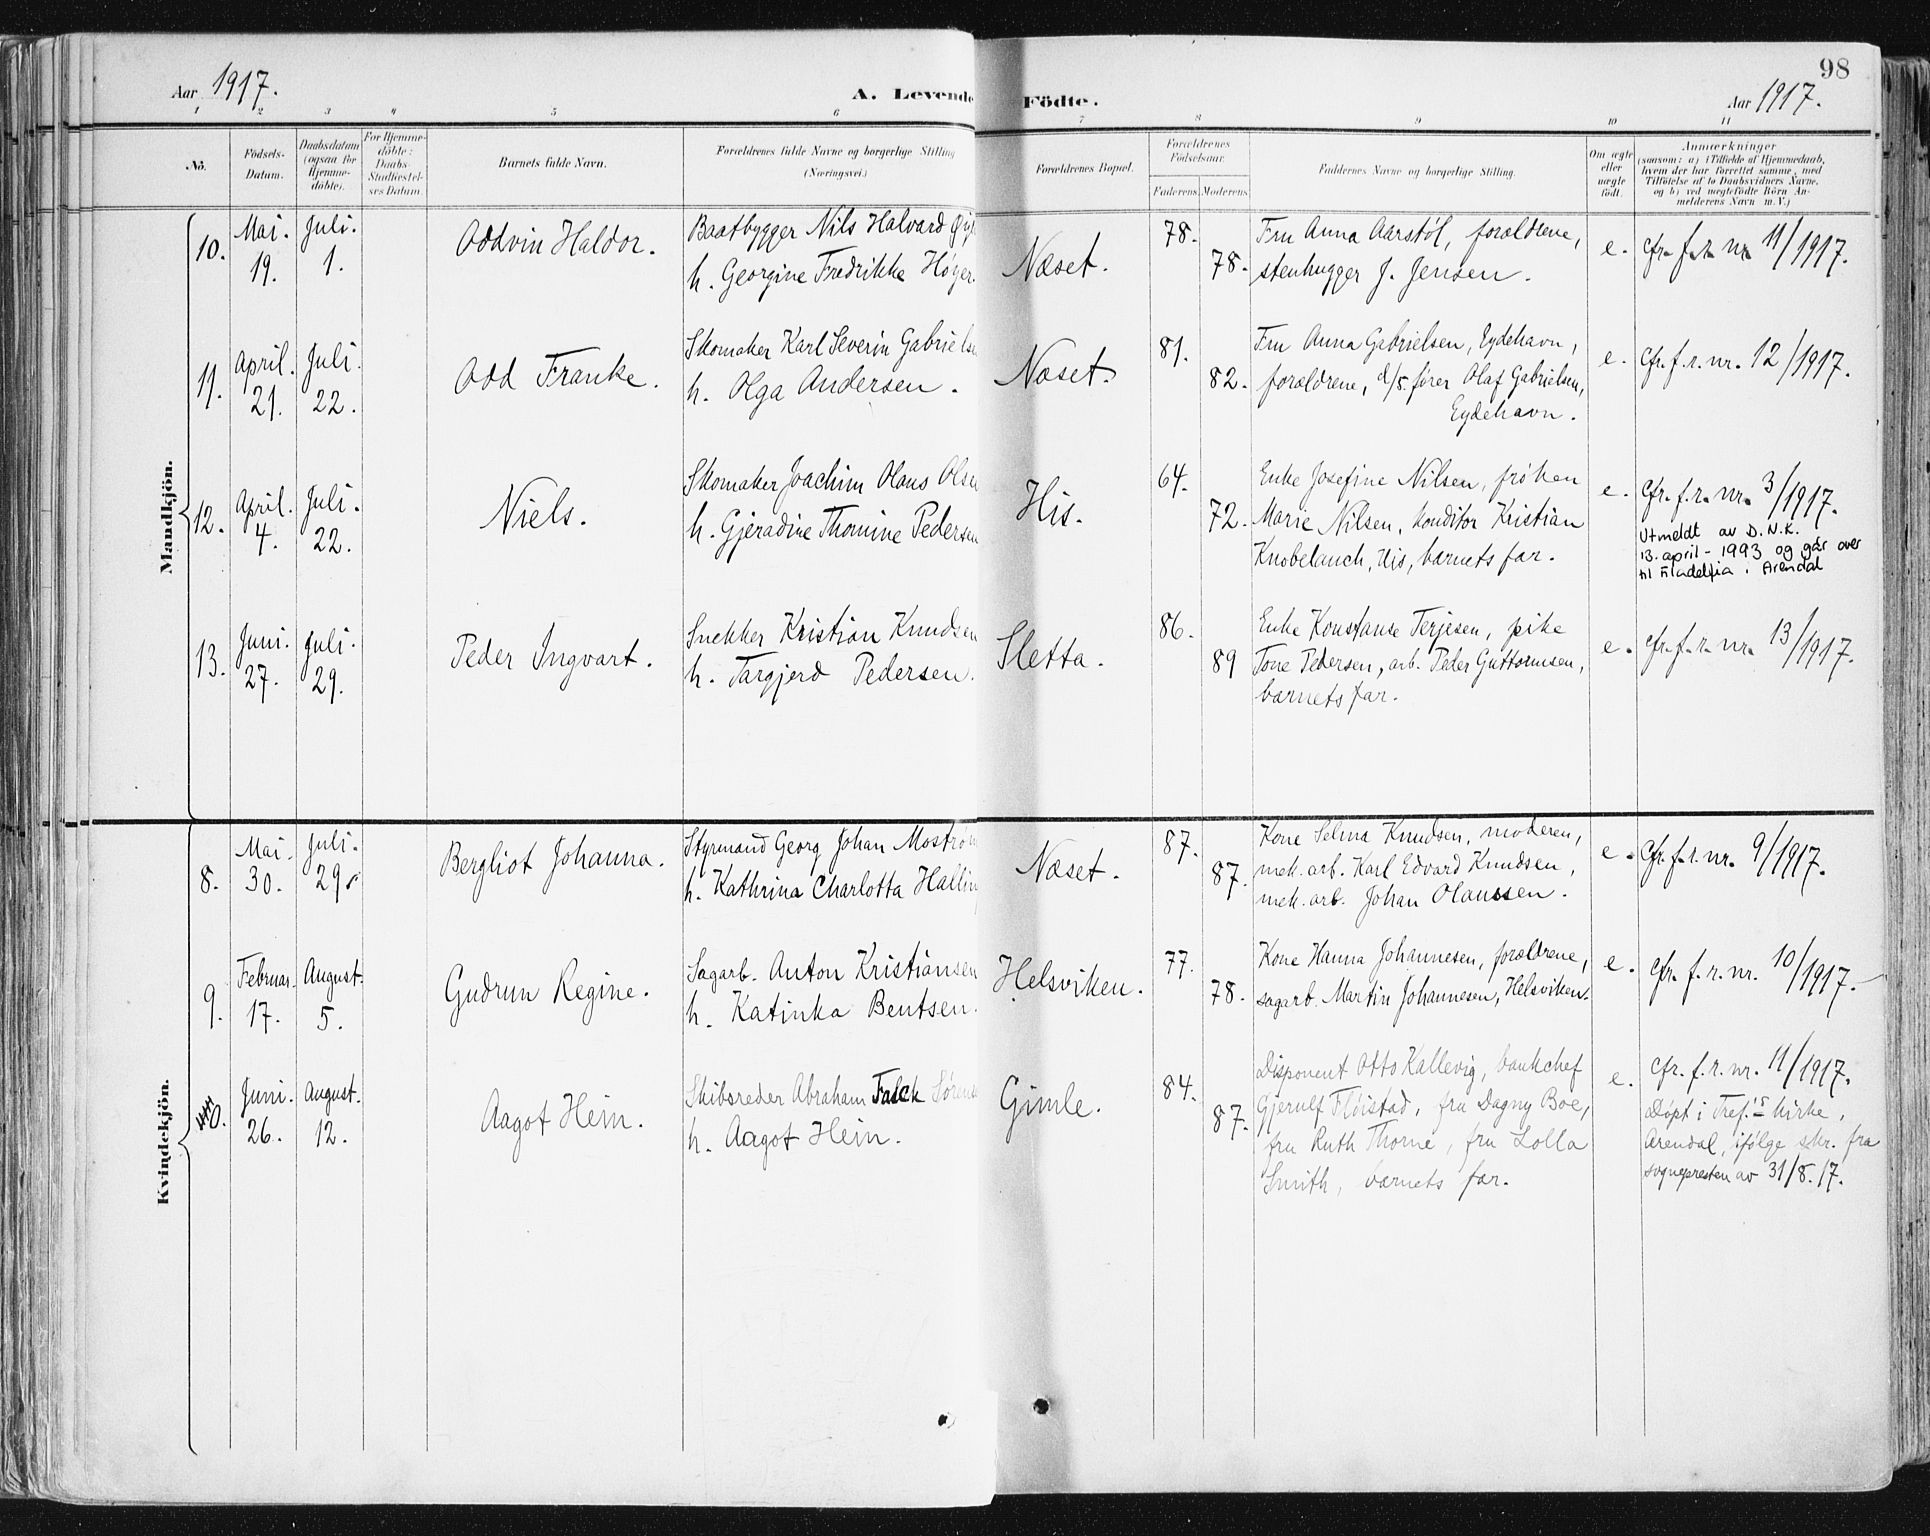 98
Aar 1917.
A. Levende Födte.
Aar 1917.
1 2 3 4 5 6 7 8 9 10 11
No.
Födsels-Datum.
Daabsdatum (ogsaa for Hjemme-döbte).
For Hjemme-döbte: Daabs-Stadfæstel-ses Datum.
Barnets fulde Navn.
Forældrenes fulde Navne og borgerlige Stilling
(Næringsvei.)
Forældrenes Bopæl.
Forældrenes Födselsaar.
Faderens. Moderens.
Faddernes Navne og borgerlige Stilling.
Om ægte eller uægte födt.
Anmærkninger
(saasom: a) i Tilfælde af Hjemmedaab,
hvem der har forrettet samme, med
Tilföielse af to Daabsvidners Navne,
og b) ved uægtefödte Börn An-
melderens Navn m. V.)
Mandkjön.
10.
Mai. 19.
Juli. 1.
Oddvin Haldor.
Baatbygger Nils Halvard
h. Georgine Fredrikke Høyer
Næset.
78.
78.
Fru Anna Aarstøl, forældrene,
stenhugger J. Jensen.
e.
Cfr. f. r. nr 11/1917.
11.
April. 21.
Juli. 22.
Odd Franke.
Skomaker Karl Severin Gabrielse
h. Olga Andersen.
Næset.
81.
82.
Fru Anna Gabrielsen, Eydehavn,
forældrene, d/s. fører Olaf Gabrielsen,
Eydehavn.
e.
Cfr. f. r. nr. 12/1917.
12.
April. 4.
Juli. 22.
Niels.
Skomaker Joachim Olaus Olse
h. Gjeradine Thomine Pedersen
His.
64.
72.
Enke Josefine Nilsen, frøken
Marie Nilsen, konditor Kristian
Knobelauch, His, barnets far.
e.
Cfr. f. r. nr. 3/1917.
Utmeldt av D.N.K.
13. april - 1993 og går over
til Filadelfia i Arendal
13.
Juni. 27.
Juli. 29.
Peder Ingvart.
Snekker Kristian Knudsen
h. Targjerd Pedersen.
Sletta.
86.
89
Enke Konstanse Terjesen, pike
Tone Pedersen, arb. Peder Guttormsen,
barnets far.
e.
Cfr. f. r. nr. 13/1917.
Kvindekjön.
8.
Mai. 30.
Juli. 29.
Bergliot Johanna.
Styrmand Georg Johan Mostrøm
h. Kathrina Charlotta Halling
Næset.
87.
87.
Kone Selma Knudsen, moderen,
mek. arb. Karl Edvard Knudsen,
mek. arb. Johan Olaussen.
e.
Cfr. f. r. nr. 9/1917.
9.
Februar. 17.
August. 5.
Gudrun Regine.
Sagarb. Anton Kristiansen
h. Katinka Bentsen.
Helsviken.
77.
78.
Kone Hanna Johannesen, forældrene,
sagarb. Martin Johannesen, Helsviken.
e.
Cfr. f. r. nr. 10/1917.
10.
Juni. 26.
August. 12.
Aagot Hein.
Skibsreder Abraham Falck Sørens
h. Aagot Hein.
Gimle.
84.
87.
Disponent Otto Kallevig, bankchef
Gjerulf Fløistad, fru Dagny Boe,
fru Ruth Thorne, fru Lolla
Smith, barnets far.
e.
Cfr. f. r. nr. 11/1917.
Døpt i Tref.'s kirke,
Arendal, ifølge skr. fra
sognepresten av 31/8.17.